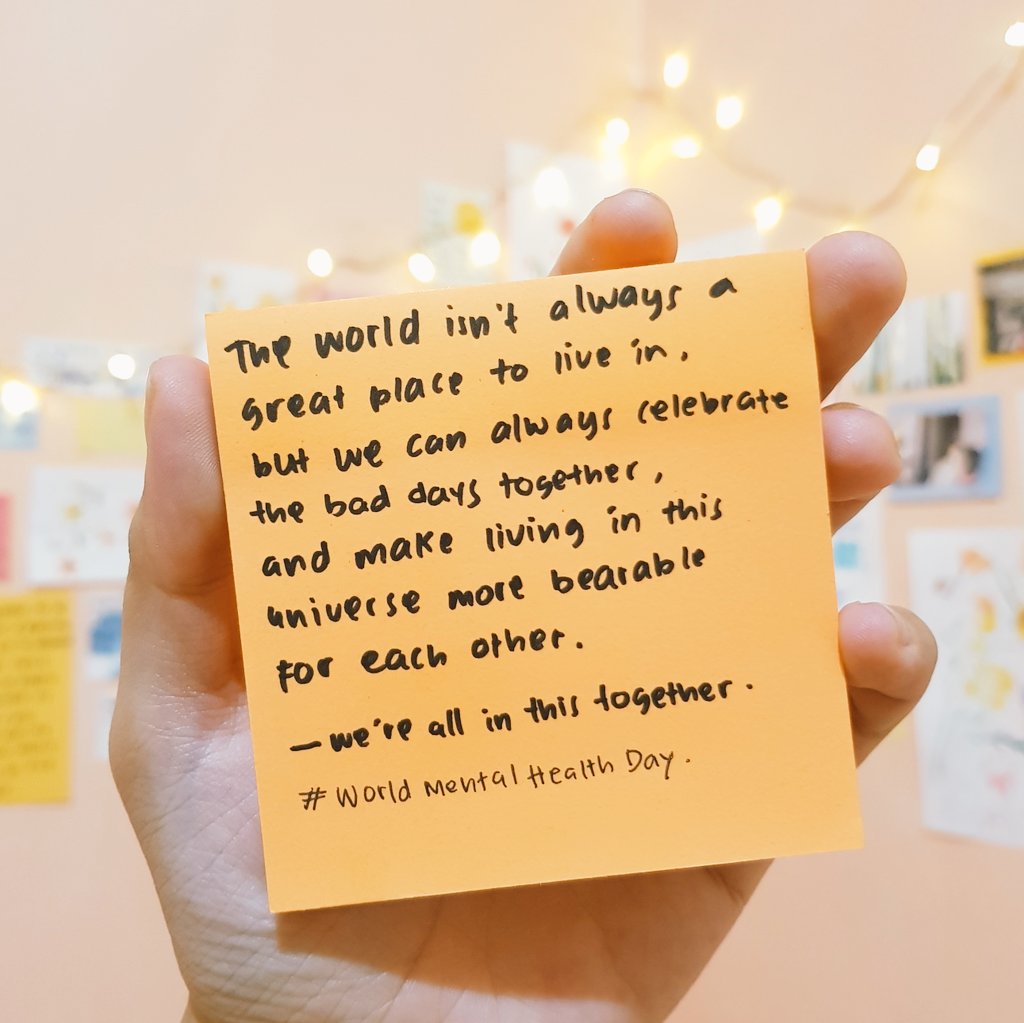 The world isn't always a
great place to live in,
but we can always celebrate
the bad days together,
and make living in this
universe more bearable
for each other.
— we're all in this together.
# World Mental Health Day.